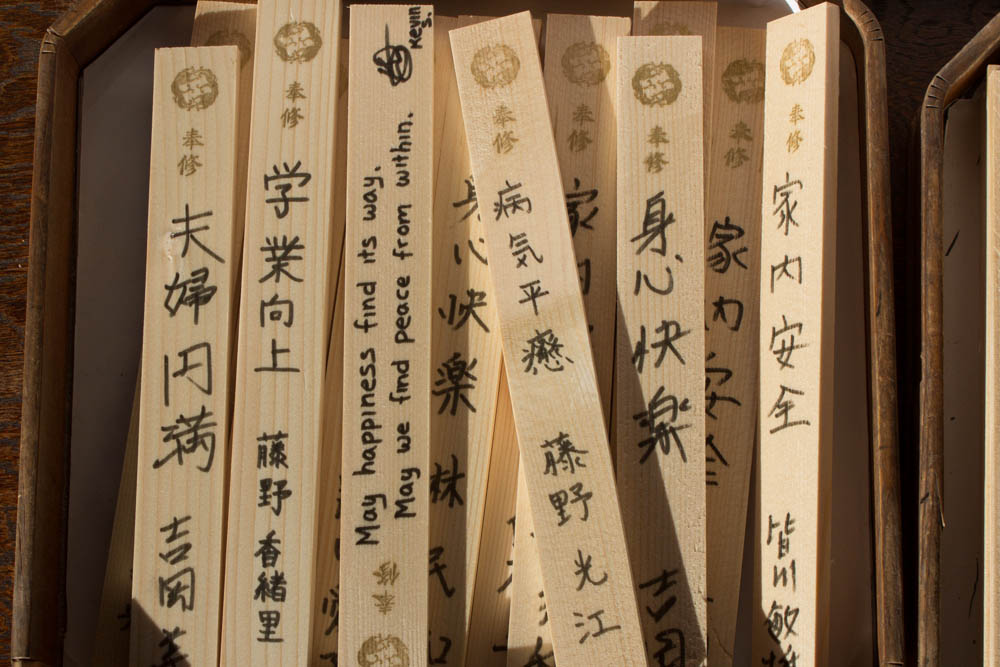 奉修
夫婦円満
吉岡
奉修
学業向上
藤野香緒里
Kevin S.
May happiness find its way.
May we find peace from within.
奉修
身心快楽
林
民
奉修
病気平癒
藤野光江
奉修
家内
奉修
身心快楽
吉岡
奉修
家内安全
奉修
家内安全
皆川敏